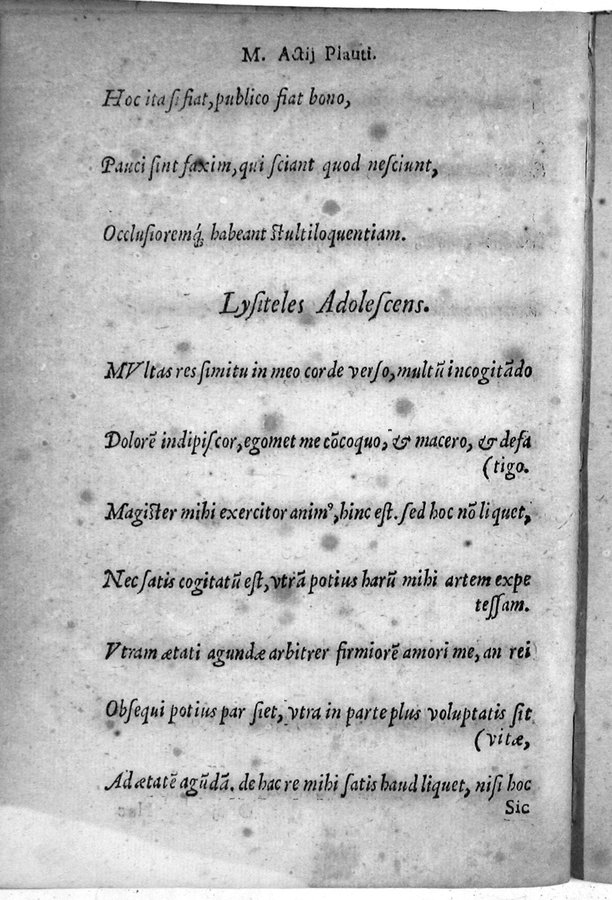 M. Actij Plauti.
Hoc ita ſi fiat, publico fiat bono,
Pauci ſint faxim, qui ſciant quod neſciunt,
Occluſioremq́; habeant ſtultiloquentiam.
Lyſiteles Adoleſcens.
MVltas res ſimitu in meo corde verſo, multũ in cogitãdo
Dolorẽ indipiſcor, egomet me cõcoquo, & macero, & defa
(tigo.
Magiſter mihi exercitor animꝰ, hinc eſt. ſed hoc nõ liquet,
Nec ſatis cogitatũ eſt, vtrã potius harũ mihi artem expe
teſſam.
Vtram ætati agundæ arbitrer firmiorẽ amori me, an rei
Obſequi potius par ſiet, vtra in parte plus voluptatis ſit
(vitæ,
Ad ætatẽ agũdã. de hac re mihi ſatis haud liquet, niſi hoc
Sic